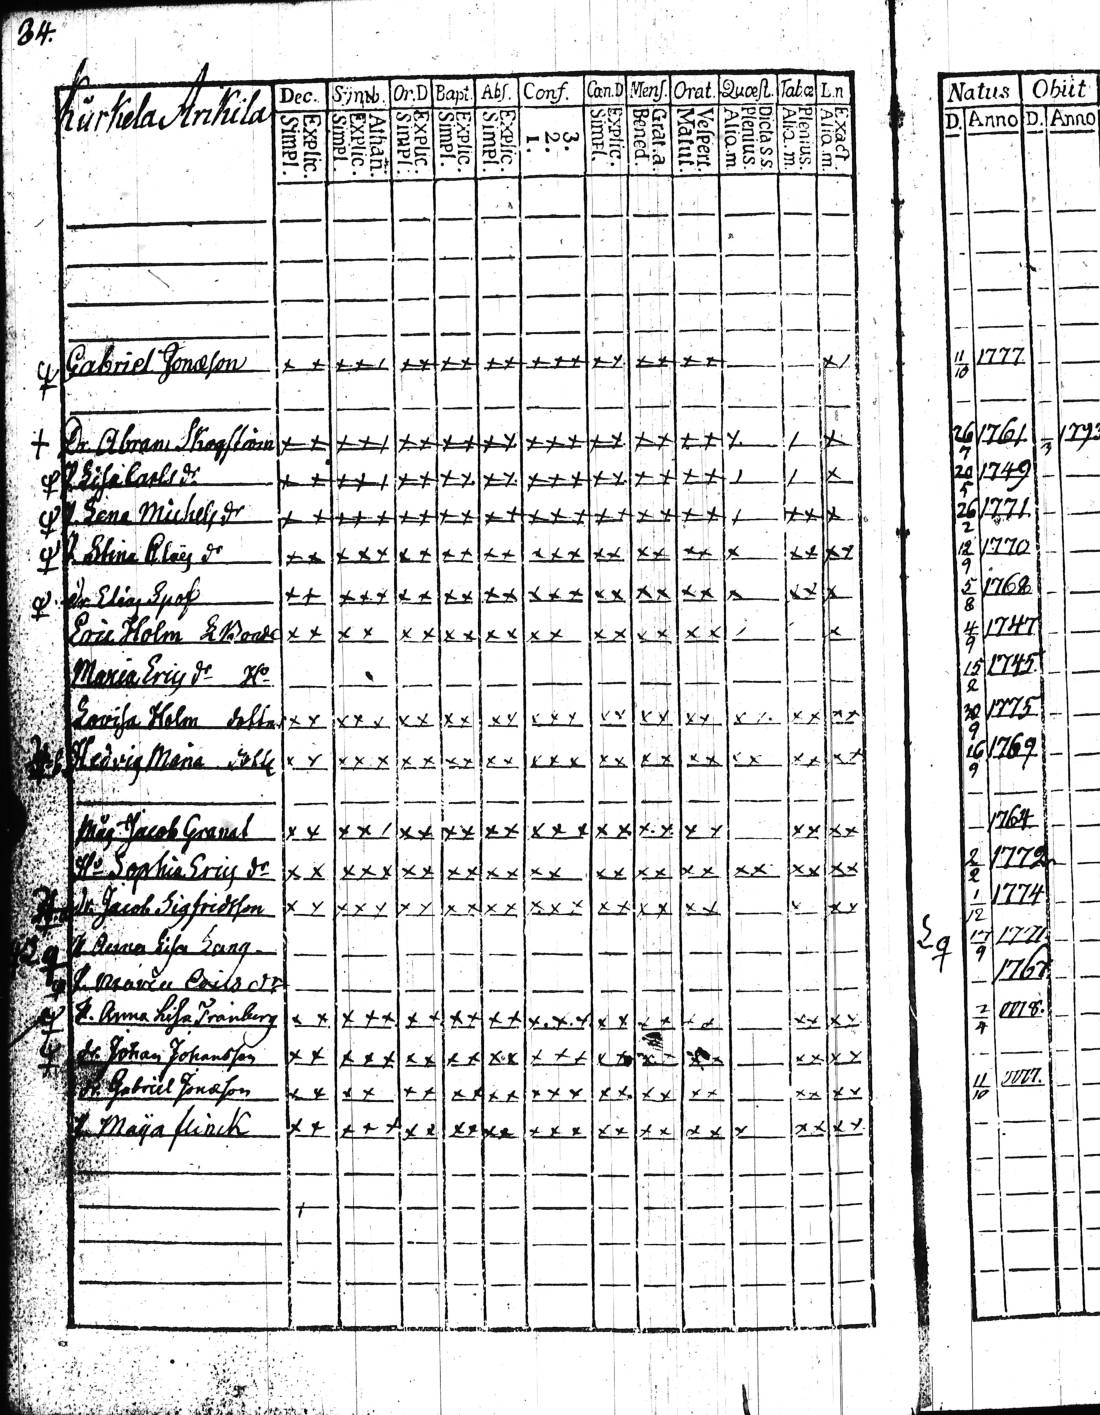 34.
Kurkela Arikila
Dec. Symb. Or.D Bapt. Abs. Conf. Can.D Mens. Orat. Quœst. Tabœ Ln
Simpl. Explic. Simpl. Explic. Athan. Simpl. Explic. Simpl. Explic. Simpl. Explic. 1. 2. 3. Simpl. Explic. Bened. Grat.a. Matut. Vespert. Aliq.m. Plenius. Dictass. Aliq.m. Plenius. Aliq.m. Exact.
Natus Obiit
D. Anno D. Anno
Gabriel Jonæson 11/10 1777
+ Dr. Abram Skogström 26/7 1761 1793
P. Lisa Carls dr 20/5 1749
P. Lena Michels dr 26/2 1771
P. Stina Claes dr 12/9 1770
Dr. Elias Spof 5/8 1768
Eric Holm 4/9 1747
Maria Erics dr Ho 15/2 1745
Lovisa Holm dotter 30/9 1775
Hedvig Maria dott 16/9 1769
Måg Jacob Granat 1764
Hu Sophia Erics dr 2/2 1772
dr. Jacob Sigfridsson 1/12 1774
P. Anna Lisa Lang 17/9
P. Maria dr
P. Anna Lisa Tranberg
dr. Johan Johansson
dr. Gabriel Jonæson 11/10
P. Maja flinck